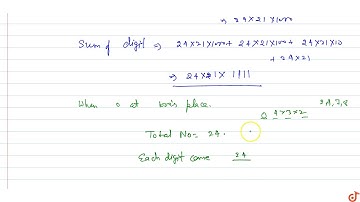 = 24×21×1000
Sum of digit ⇒ 24×21×1000+ 24×21×100+ 24×21×10
+ 24×21
⇒ 24×21× 1111
When 0 at place.
0 4×3×2
Total No= 24.
Each digit come 24